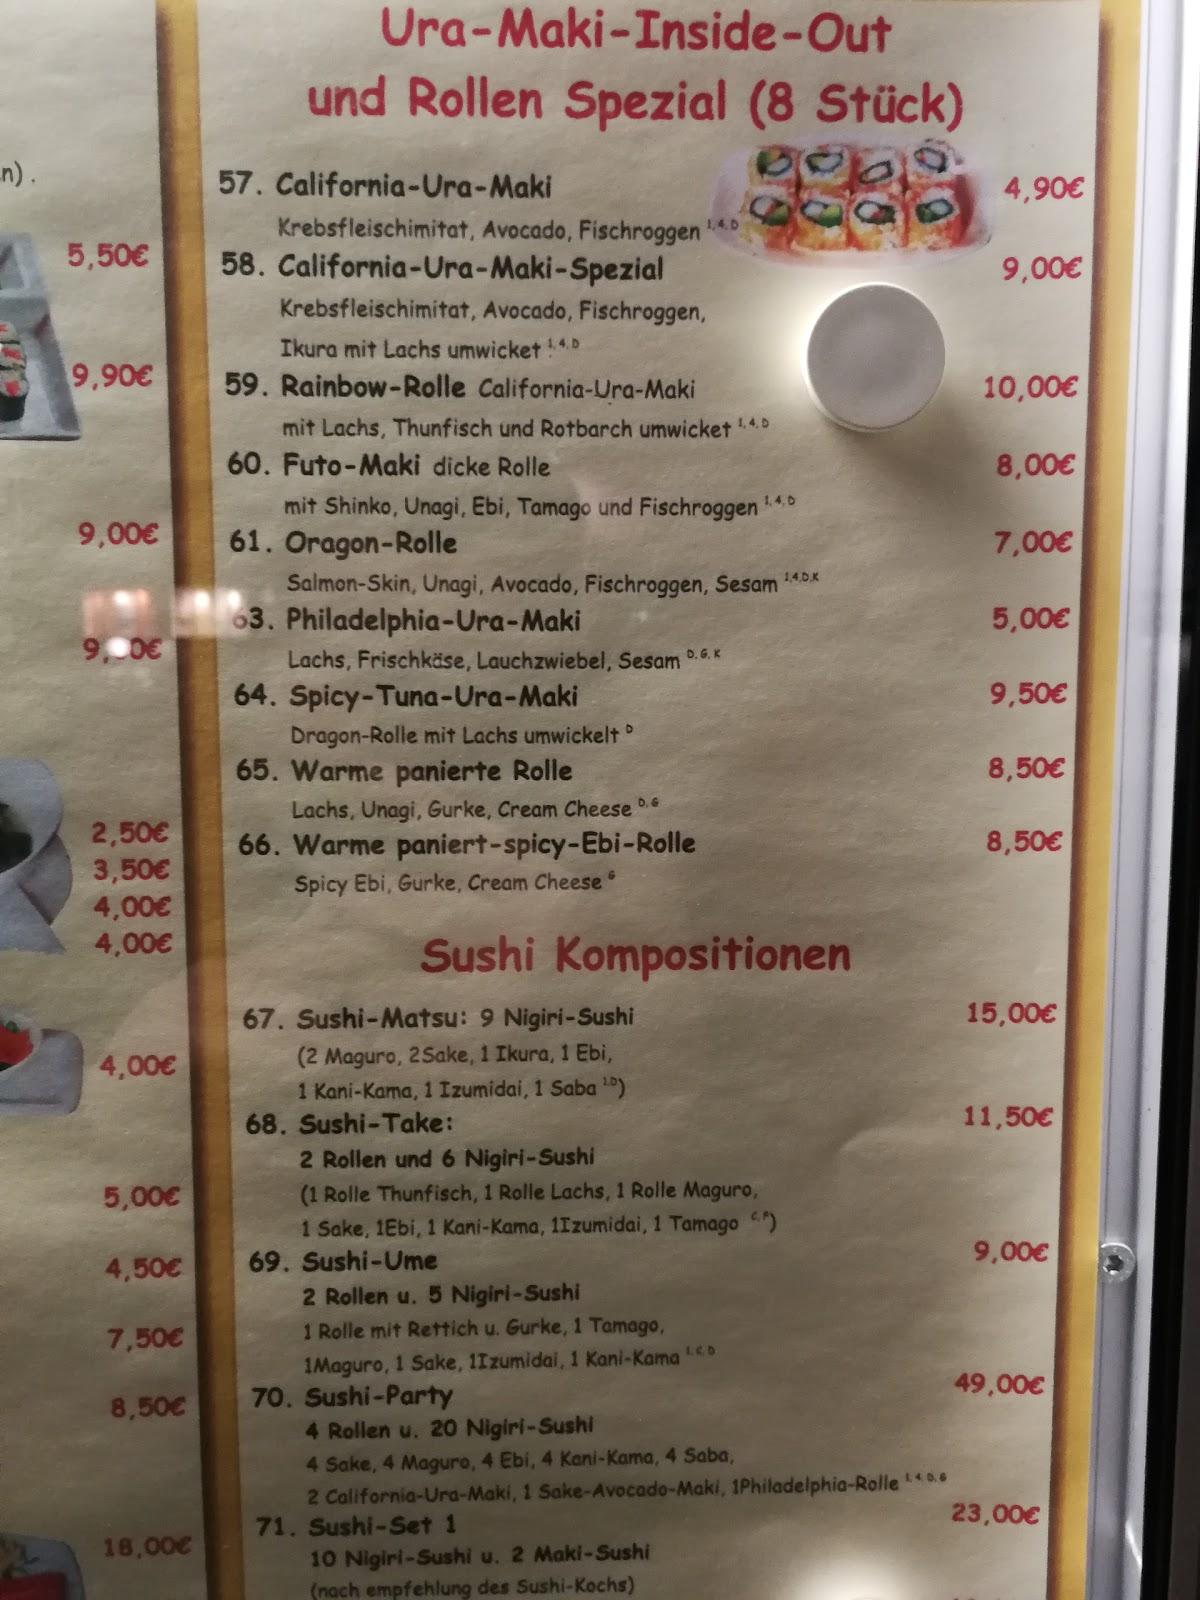 Ura-Maki-Inside-Out
und Rollen Spezial (8 Stück)
57. California-Ura-Maki 4,90€
Krebsfleischimitat, Avocado, Fischroggen 1,4,D
58. California-Ura-Maki-Spezial 9,00€
Krebsfleischimitat, Avocado, Fischroggen,
Ikura mit Lachs umwicket 1,4,D
59. Rainbow-Rolle California-Ura-Maki 10,00€
mit Lachs, Thunfisch und Rotbarch umwicket 1,4,D
60. Futo-Maki dicke Rolle 8,00€
mit Shinko, Unagi, Ebi, Tamago und Fischroggen 1,4,D
61. Oragon-Rolle 7,00€
Salmon-Skin, Unagi, Avocado, Fischroggen, Sesam 1,4,D,K
63. Philadelphia-Ura-Maki 5,00€
Lachs, Frischkäse, Lauchzwiebel, Sesam D,G,K
64. Spicy-Tuna-Ura-Maki 9,50€
Dragon-Rolle mit Lachs umwickelt D
65. Warme panierte Rolle 8,50€
Lachs, Unagi, Gurke, Cream Cheese D,G
66. Warme paniert-spicy-Ebi-Rolle 8,50€
Spicy Ebi, Gurke, Cream Cheese G
Sushi Kompositionen
67. Sushi-Matsu: 9 Nigiri-Sushi 15,00€
(2 Maguro, 2Sake, 1 Ikura, 1 Ebi,
1 Kani-Kama, 1 Izumidai, 1 Saba 1,D)
68. Sushi-Take: 11,50€
2 Rollen und 6 Nigiri-Sushi
(1 Rolle Thunfisch, 1 Rolle Lachs, 1 Rolle Maguro,
1 Sake, 1Ebi, 1 Kani-Kama, 1Izumidai, 1 Tamago )
69. Sushi-Ume 9,00€
2 Rollen u. 5 Nigiri-Sushi
1 Rolle mit Rettich u. Gurke, 1 Tamago,
1Maguro, 1 Sake, 1Izumidai, 1 Kani-Kama 1,C,D
70. Sushi-Party 49,00€
4 Rollen u. 20 Nigiri-Sushi
4 Sake, 4 Maguro, 4 Ebi, 4 Kani-Kama, 4 Saba,
2 California-Ura-Maki, 1 Sake-Avocado-Maki, 1Philadelphia-Rolle 1,4,D,G
71. Sushi-Set 1 23,00€
10 Nigiri-Sushi u. 2 Maki-Sushi
(nach empfehlung des Sushi-Kochs)
n).
5,50€
9,90€
9,00€
2,50€
3,50€
4,00€
4,00€
4,00€
5,00€
4,50€
7,50€
8,50€
18,00€